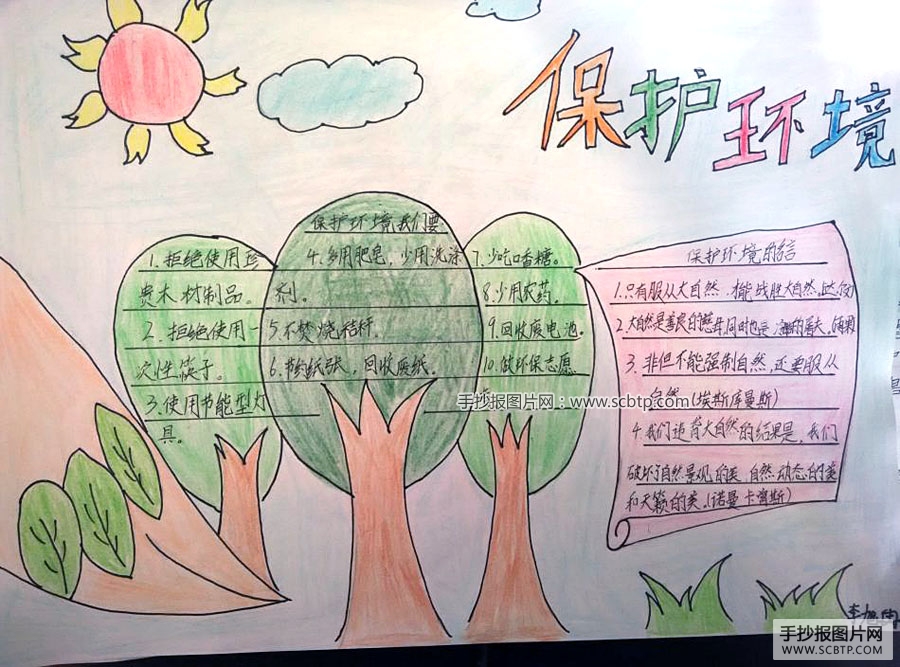 保护环境
保护环境我们要
1.拒绝使用珍
贵木材制品。
2.拒绝使用一
次性筷子。
3.使用节能型灯
具。
4.多用肥皂,少用洗涤
剂。
5.不焚烧秸秆
6.节约纸张,回收废纸.
7.少吃口香糖。
8.少用农药。
9.回收废电池.
10.做环保志愿
保护环境的名言
1.只有服从大自然,才能战胜大自然.
2.大自然是善良的慈母,同时也是
3.非但不能强制自然,还要服从
自然(埃斯库曼斯)
4.我们违背大自然的结果是,我们
破坏了自然景观的美,自然动态的美
和天籁的美.(诺曼卡曾斯)
手抄报图片网:www.scbtp.com
手抄报图片网
WWW.SCBTP.COM